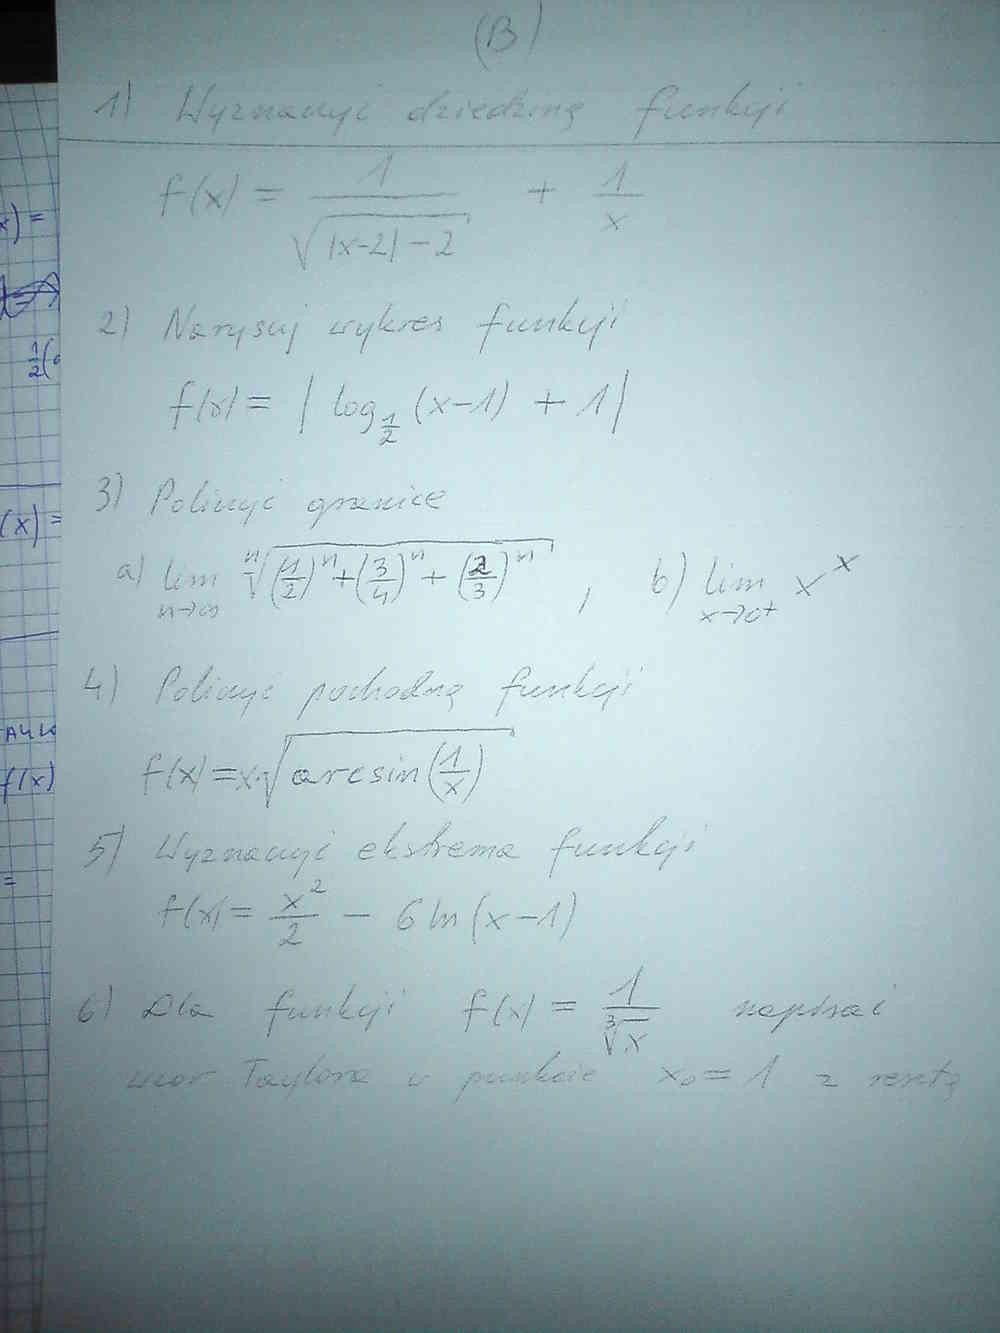 (B)
1) Wyznaczyć dziedzinę funkcji
f(x) = 1/√(|x-2|-2) + 1/x
2) Narysuj wykres funkcji
f(x) = | log_{1/2} (x-1) + 1 |
3) Policzyć granice
a) lim_{n→∞} ⁿ√((1/2)^n + (3/4)^n + (2/3)^n) , b) lim_{x→0+} x^x
4) Policzyć pochodną funkcji
f(x) = x·√(arcsin(1/x))
5) Wyznaczyć ekstrema funkcji
f(x) = x²/2 - 6 ln(x-1)
6) Dla funkcji f(x) = 1/∛x napisać
wzór Taylora w punkcie x₀ = 1 z resztą
x) =
1/2(
(x) =
f(x)
=